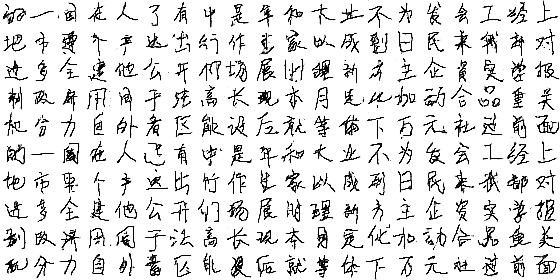 的一国在人了有中是年和大业不为发会工经上
地市要个产这出行作生家以成到日民来我部对
进多全建他公开们场展时理新方主企资实学报
制政济用同于法高长现本月定化加动合品重关
机分力自外者区能设后就等体下万元社过前面
的一国在人了有中是年和大业不为发会工经上
地市要个产这出行作生家以成到日民来我部对
进多全建他公开们场展时理新方主企资实学报
制政济用同于法高长现本月定化和动合品重关
机分力自外者区能设后就等体下万元社过前面